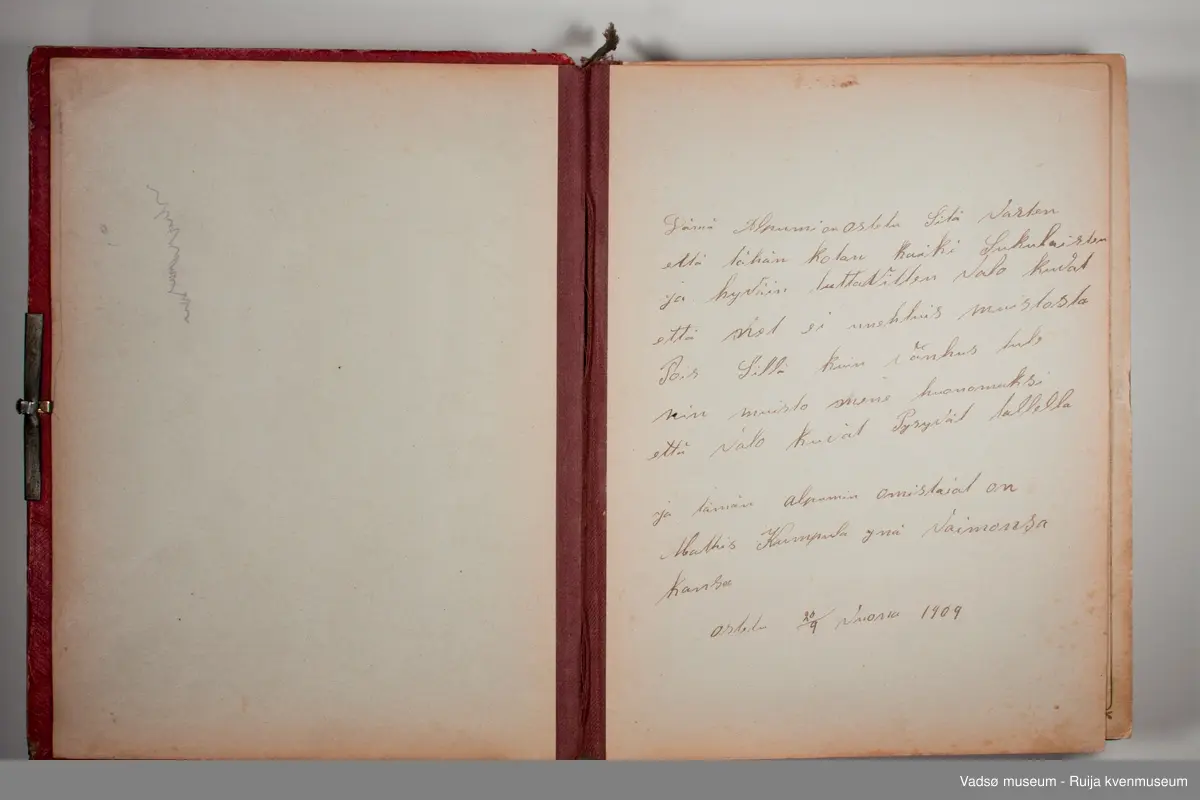 Tämä Alpumi on ostetu Sitä Varten
että tähän kotan kaiki Sukulaisten
ja hyväin tuttaVitten Valo kuvat
että met ei unehtuis muistosta
Pois Sillä kuin vänhus tule
nin muisto mene huonomuksi
että valo kuvat Pysyvät tallella
ja tämän alpumin omistaiat on
Mathis Kumpula ynä Vaimonsa
kansa
ostetu 20/9 Vuona 1909
Vadsø museum - Ruija kvenmuseum